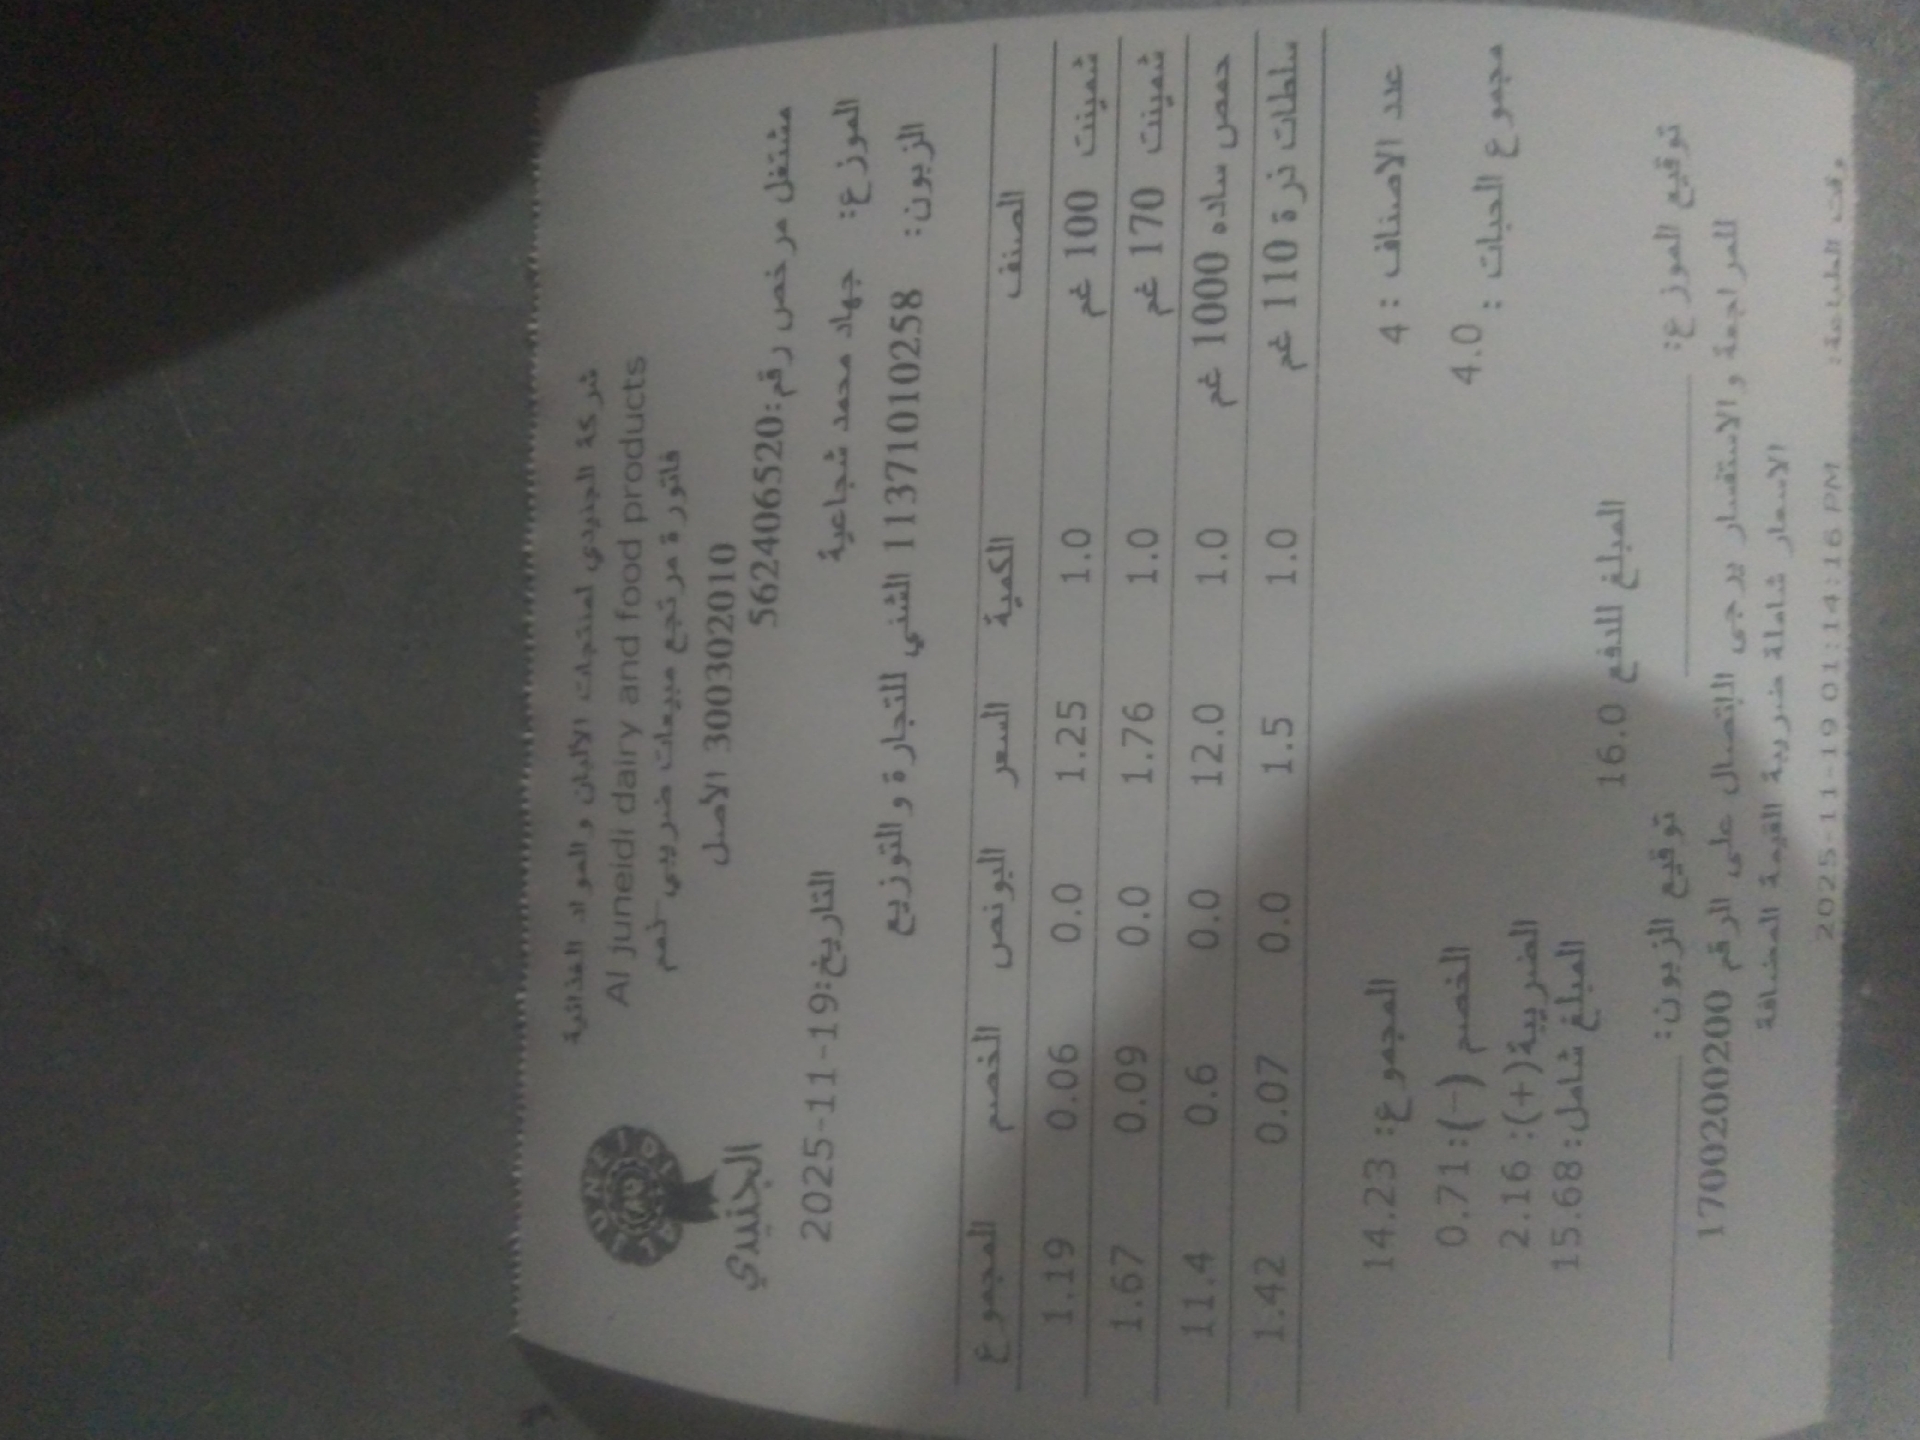 شركة الجنيدي لمنتجات الألبان والمواد الغذائية
Al juneidi dairy and food products
فاتورة مرتجع مبيعات ضريبي
3003020010 الأصل
مشتغل مرخص رقم:562406520
AL JUNEIDI
الجنيدي
الموزع: جهاد محمد شجاعية
التاريخ:2025-11-19
الزبون: 1137101010258 الشني للتجارة والتوزيع
الصنف الكمية السعر البونص الخصم المجموع
شمينت 100 غم 1.0 1.25 0.0 0.06 1.19
شمينت 170 غم 1.0 1.76 0.0 0.09 1.67
حمص ساده 1000 غم 1.0 12.0 0.0 0.6 11.4
سلطات ذرة 110 غم 1.0 1.5 0.0 0.07 1.42
عدد الاصناف : 4 المجموع: 14.23
مجموع الحبات : 4.0 الخصم (-): 0.71
الضريبة(+): 2.16
المبلغ شامل: 15.68
المبلغ للدفع 16.0
توقيع الموزع: توقيع الزبون:
للمراجعة والاستفسار يرجى الاتصال على الرقم 1700200200
الاسعار شاملة ضريبة القيمة المضافة
وقت الطباعة: 2025-11-19 01:14:16 PM